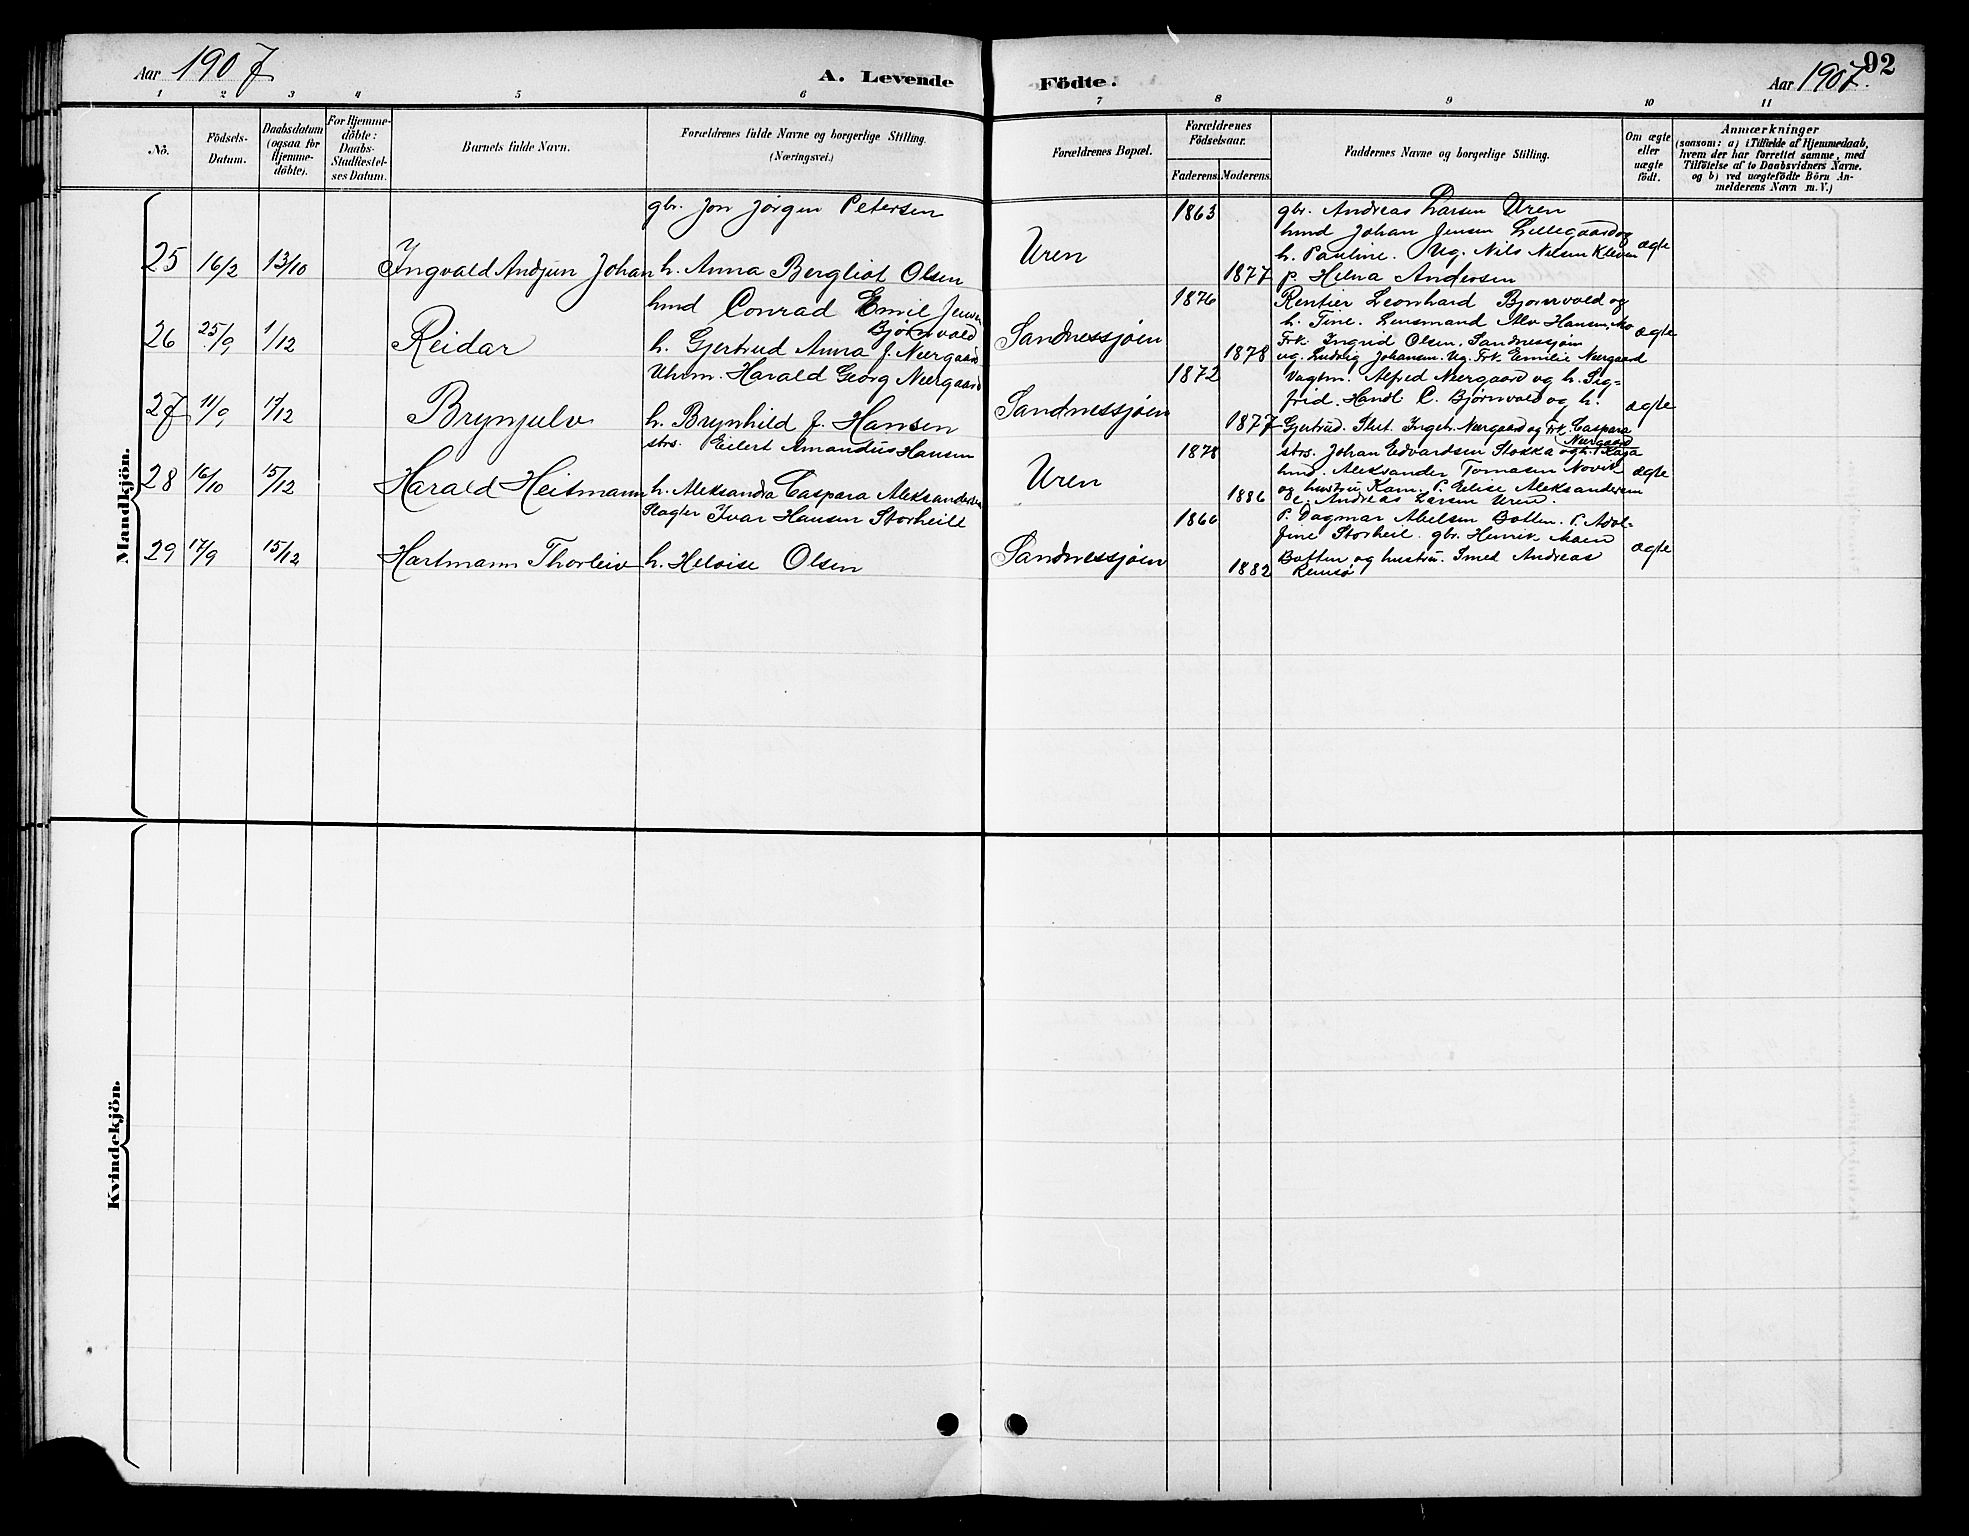 Aar 1907
A. Levende
Födte.
Aar 1907.
92
1 2 3 4 5 6 7 8 9 10 11
Nö.
Födsels-
Datum.
Daabsdatum
(ogsaa for
Hjemme-
döbte).
For Hjemme-
döbte:
Daabs-
Stadfæstel-
ses Datum.
Barnets fulde Navn.
Forældrenes fulde Navne og borgerlige Stilling.
(Næringsvei.)
Forældrenes Bopæl.
Forældrenes
Födselsaar.
Faderens. Moderens.
Faddernes Navne og borgerlige Stilling.
Om ægte
eller
uægte
födt.
Anmærkninger
(saasom: a) i Tilfælde af Hjemmedaab,
hvem der har forrettet samme, med
Tilföielse af to Daabsvidners Navne.
og b) ved uægtefödte Börn An-
melderens Navn m. V.)
Mandkjön.
gbr. Jon Jörgen Petersen
25 16/2 13/10 Ingvald Andjun Johan h. Anna Bergliot Olsen
Uren
1863
1877
gbr. Andreas Larsen Uren
hmd Johan Jensen Lillegaard og
h. Pauline. Ug. Nils Nelsen Kleven
p Helna Andersen
ægte
hmd Conrad Emil Jensen
Björnvald
26 25/9 1/12 Reidar h. Gjertrud Anna f. Neergaard
Sandnessjöen
1876
1878
Rentier Leonhard Bjørnvald og
h. Tine. Lensmand Alv Hansen, Mo
Frk. Ingrid Olsen, Sandnessjøen
ug. Ludvig Johansen. Ug. Frk. Emilie Neergaard
ægte
Uhrm. Harald Georg Neergaard
27 11/9 1/12 Brynjulv h. Brynhild f. Hansen
Sandnessjöen
1872
1877
Vagtm. Alfred Neergaard og h. Sig-
frid. Handl C. Bjørnvald og h.
Gjertrud. Stud. Ingeb. Neergaard og Frk. Caspara
Neergaard
ægte
strs. Eilert Amandus Hansen
28 16/10 15/12 Harald Heitmann h. Aleksandra Caspara Aleksandersen
Uren
1878
1886
strs. Johan Edvardsen Stokka og h. Kaja
hmd. Aleksander Tomasen Novik
og hustru Karn. P. Elise Aleksandersen
e. Andreas Larsen Uren.
ægte
Slagter Ivar Hansen Storheill
29 17/9 15/12 Hartmann Thorleiv h. Heloise Olsen
Sandnessjöen
1866
1882
P. Dagmar Abelsen Botten. P. Adol-
fine Storheil. gbr. Henrik Moen
Botten og hustru. Smed Andreas
Remsö
ægte
Kvindekjön.